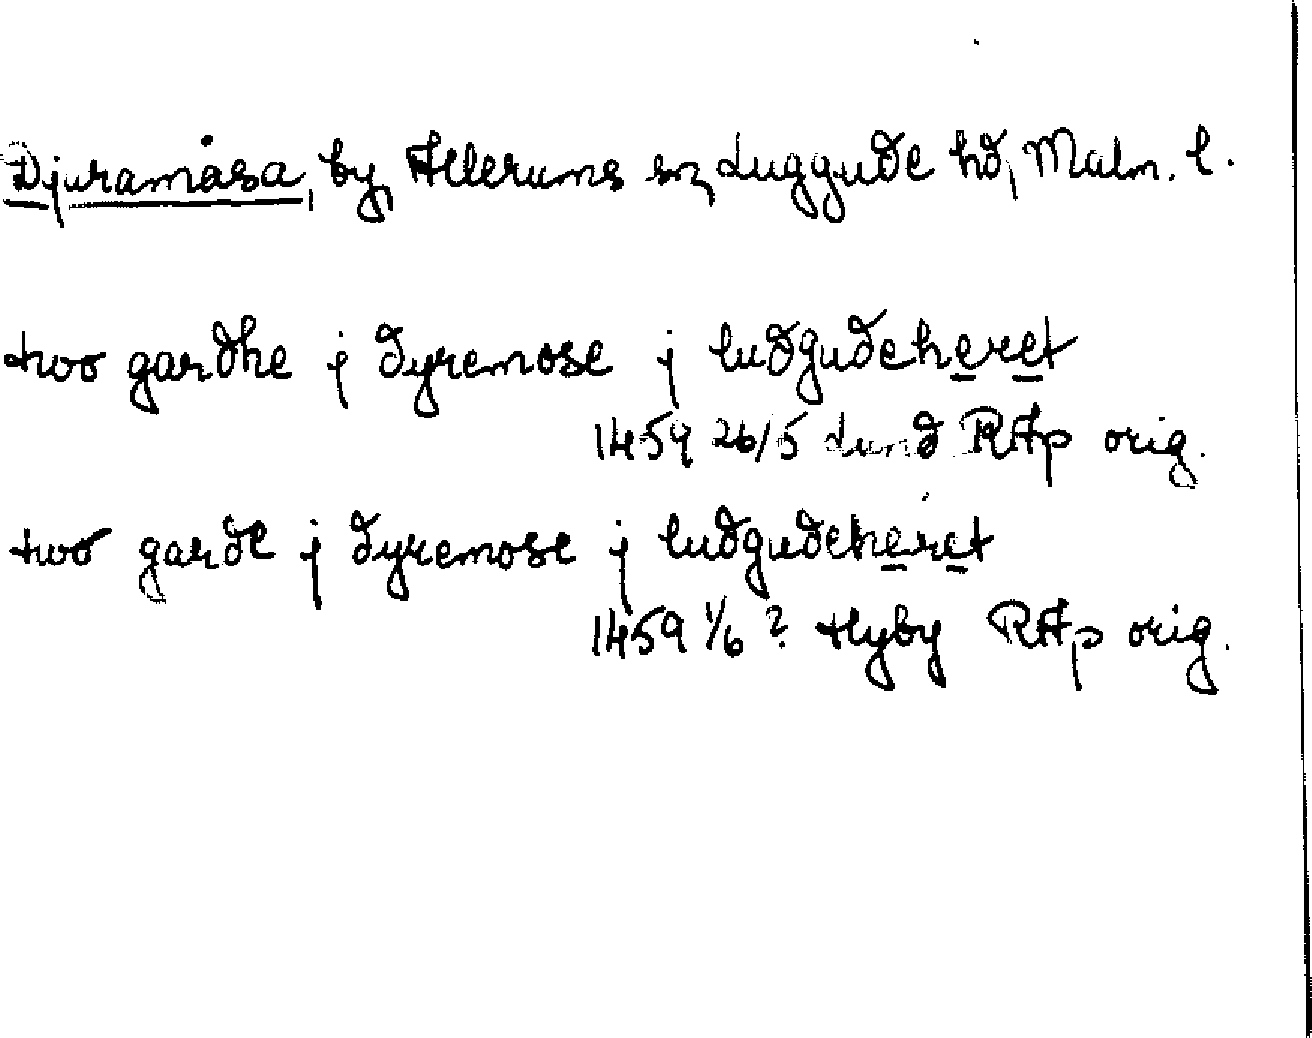 Djuramåsa, by, Allerums sn, Luggude hd, Malm. l.
two gardhe j dyremose j ludgudeheret
1459 26/5 Lund RAp orig.
two garde j dyremose j ludgudeheret
1459 1/6 ? Hyby RAp orig.